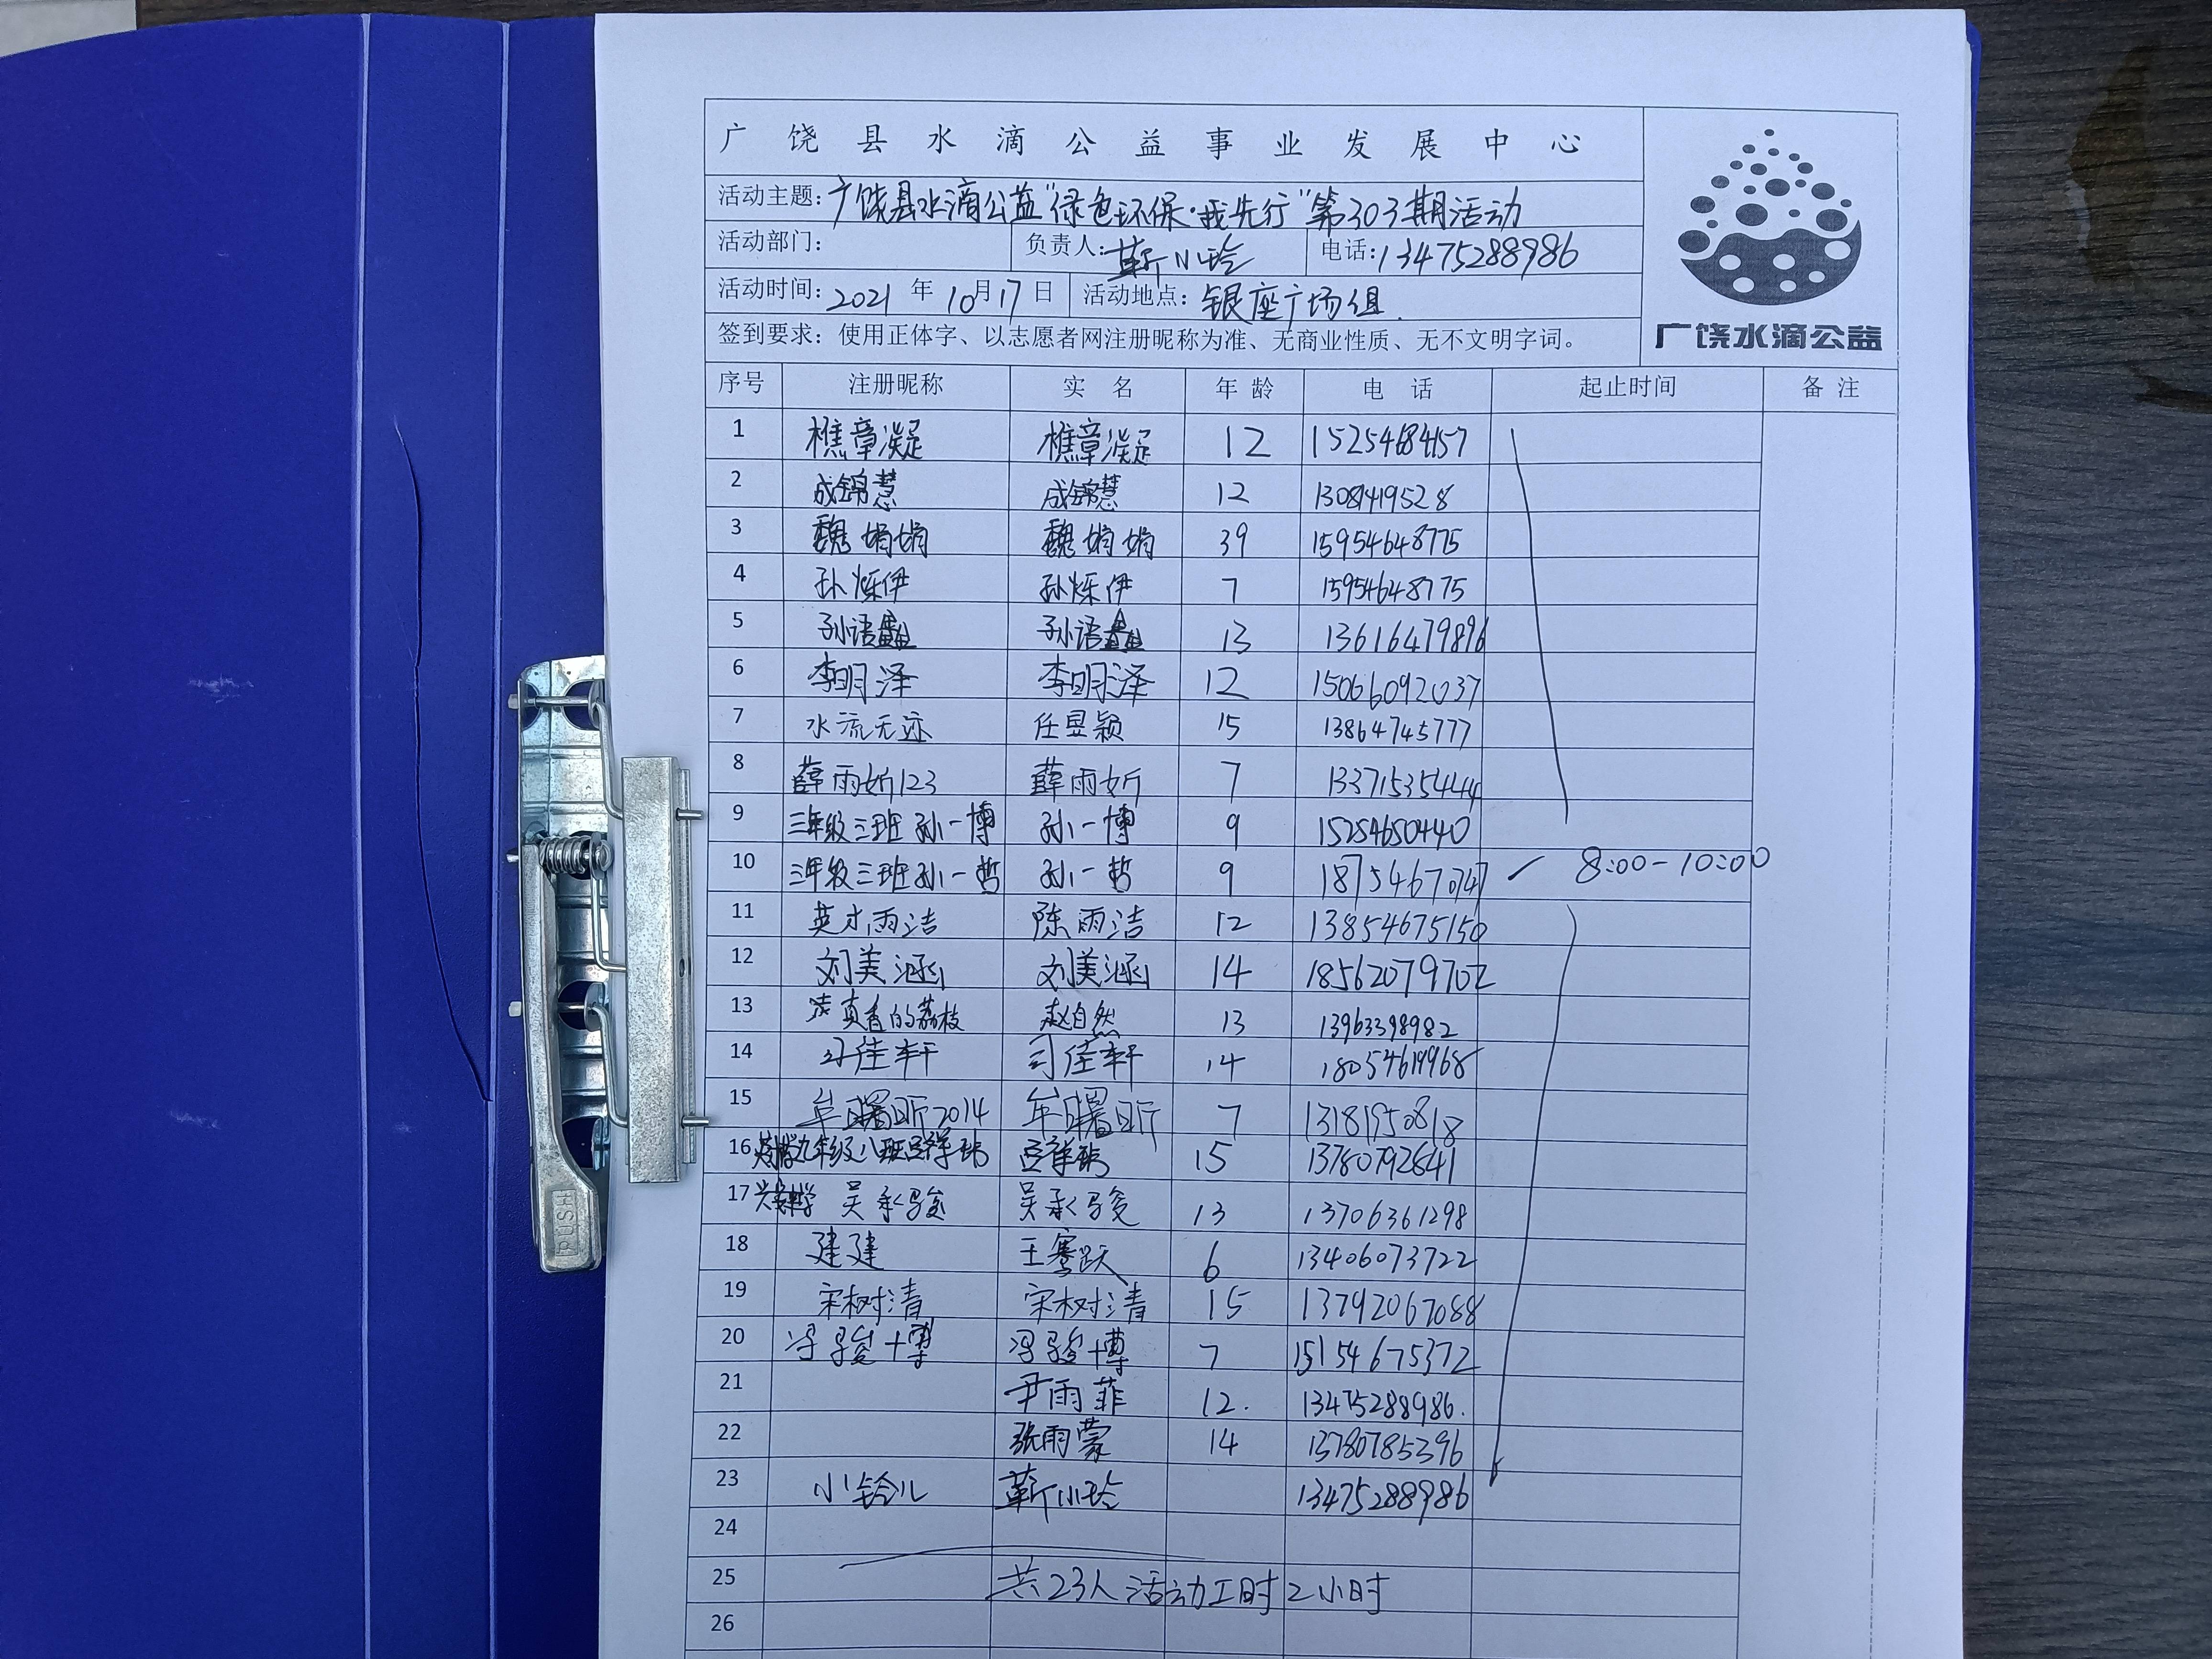 广饶县水滴公益事业发展中心
活动主题：广饶县水滴公益“绿色环保·我先行”第303期活动
活动部门： 负责人：靳小玲 电话：13475288986
活动时间：2021年10月17日 活动地点：银座广场组.
签到要求：使用正体字、以志愿者网注册昵称为准、无商业性质、无不文明字词。
广饶水滴公益
序号 注册昵称 实名 年龄 电话 起止时间 备注
1 樵章凝 樵章凝 12 15254684157
2 成锦慧 成锦慧 12
3 魏娟娟 魏娟娟 39 15954648775
4 孙烁伊 孙烁伊 7 15954648775
5 孙语 孙语 13 13616479896
6 李明泽 李明泽 12 15066092037
7 水流无迹 任昱颖 15 13864745777
8 薛雨妡123 薛雨妡 7 13371535444
9 三年级三班孙一博 孙一博 9 15254650440
10 三年级三班孙一哲 孙一哲 9 18754670747 8:00-10:00
11 英才雨洁 陈雨洁 12 13854675150
12 刘美涵 刘美涵 14 18562079702
13 真香的荔枝 赵自然 13 13963398982
14 司佳轩 司佳轩 14 18054619968
15 牟曙昕2014 牟曙昕 7 13181950818
16 九年级八班 15 13780792641
17 吴承骏 吴承骏 13 13706361298
18 建建 王骞跃 6 13406073722
19 宋树清 宋树清 15 13792067088
20 冯骏博 冯骏博 7 15154675372
21 尹雨菲 12. 13475288986.
22 张雨蒙 14 13780785396
23 小铃儿 靳小玲 13475288986
24
25 共23人活动工时2小时
26
PUSH